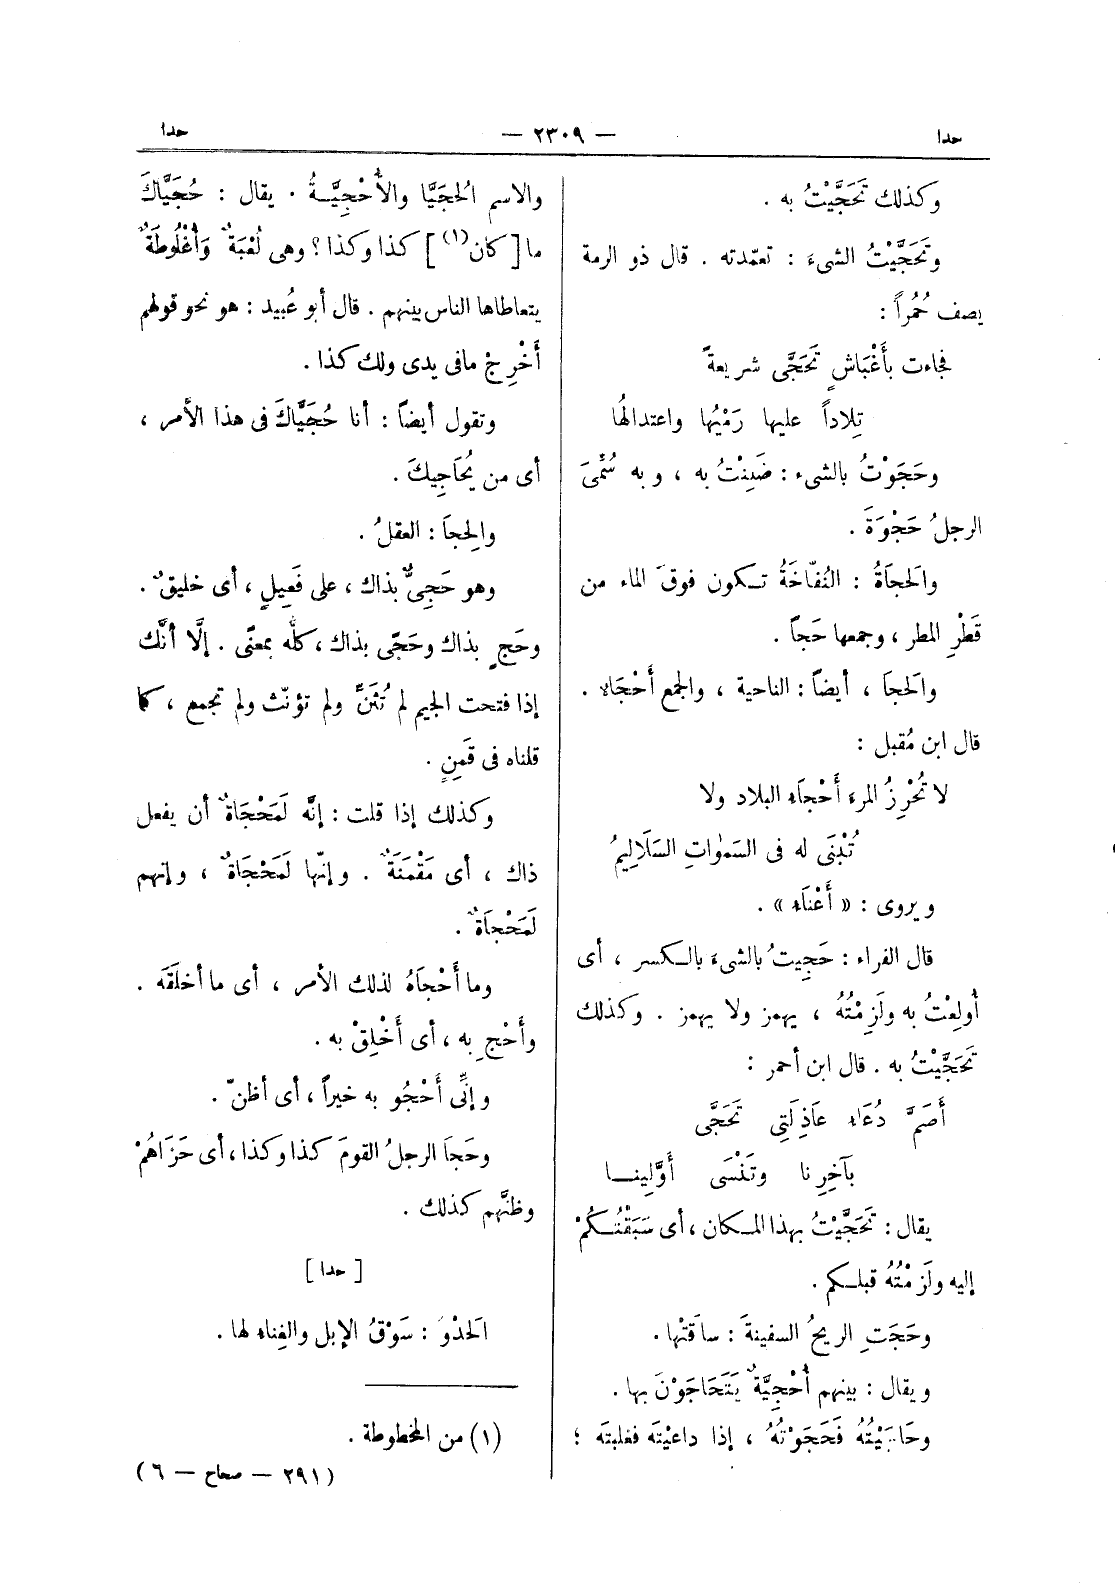 حدا — ٢٣٠٩ — حدا
وكذلك تَحَجَّيْتُ به .
وتَحَجَّيْتُ الشىءَ : تعمّدته . قال ذو الرمة
يصف حُمُراً :
فجاءت بأَغْبَاشٍ تَحَجَّى شريعةً
تِلاداً عليها رَمْيُها واعتدالُها
وحَجَوْتُ بالشىء : ضَنِنْتُ به ، وبه سُمِّىَ
الرجلُ حَجْوَةَ .
والَحجاَةُ : النُفّاخَةُ تـكون فوقَ الماء من
قَطْرِ المطر ، وجمعها حَجاً .
والَحجاَ ، أيضاً : الناحية ، والجمع أَحْجَاء .
قال ابن مُقبل :
لا تُحْرِزُ المرءَ أَحْجاَءِ البلاد ولا
تُبْنَى له فى السمٰواتِ السَلَاليمُ
ويروى : « أَعْنَاءِ » .
قال الفراء : حَجِيتُ بالشىءَ بالـكسر ، أى
أُولِعْتُ به ولَزِمْتُهُ ، يهمز ولا يهمز . وكذلك
تَحَجَّيْتُ به . قال ابن أحمر :
أَصَمَّ دُعَاءِ عاَذِلَتِى تَحَجَّى
بآخِرِنا وتَنْسَى أَوَّلِينـــا
يقال : تَحَجَّيْتُ بهذا المـكان ، أى سَبَقْتُـكُمْ
إليه ولَزِمْتُهُ قبلـكم .
وحَجَتِ الريحُ السفينةَ : ساقَتْها .
ويقال : بينهم أُحْجِيَّةٌ يَتَحَاجَوْنَ بها .
وحَاجَيْتُهُ فَحَجَوْتُهُ ، إذا داعيْتَه فغلبتَه ؛
والاسم الُحجَيَّا والأُحْجِيَّـةُ . يقال : حُجَيَّاكَ
ما [ كان(١) ] كذا وكذا ؟ وهى لُعْبَةٌ وَأُغْلُوطَةٌ
يتعاطاها الناس بينهم . قال أبو عُبيد : هو نحو قولهم
أَخْرِجْ مافى يدى ولك كذا .
وتقول أيضاً : أنا حُجَيَّاكَ فى هذا الأمر ،
أى من يُحَاجِيكَ .
والِحجاَ : العقلُ .
وهو حَجِىٌّ بذاك ، على فَعِيلٍ ، أى خليقٌ .
وحَجٍ بذاك وحَجًى بذاك ، كلُّه بمعنًى . إلَّا أنَّك
إذا فتحت الجيم لم تُثَنِّ ولم تؤنّث ولم تجمع ، كما
قلناه فى قَمَنٍ .
وكذلك إذا قلت : إنَّه لَمَحْجَاةٌ أن يفعل
ذاك ، أى مَقْمَنَةٌ . وإنّها لَمَحْجَاةٌ ، وإنهم
لَمَحْجاَةٌ .
وما أَحْجاَهُ لذلك الأمر ، أى ما أخلَقَه .
وأَحْجِ به ، أى أَخْلِقْ به .
وإنِّى أَحْجُو به خيراً ، أى أظنّ .
وحَجاَ الرجلُ القومَ كذا وكذا ، أى حَزَاهُمْ
وظنَّهم كذلك .
[ حدا ]
الَحدْوُ : سَوْقُ الإبل والغِناء لها .
(١) من المخطوطة .
(٢٩١ — صحاح — ٦)